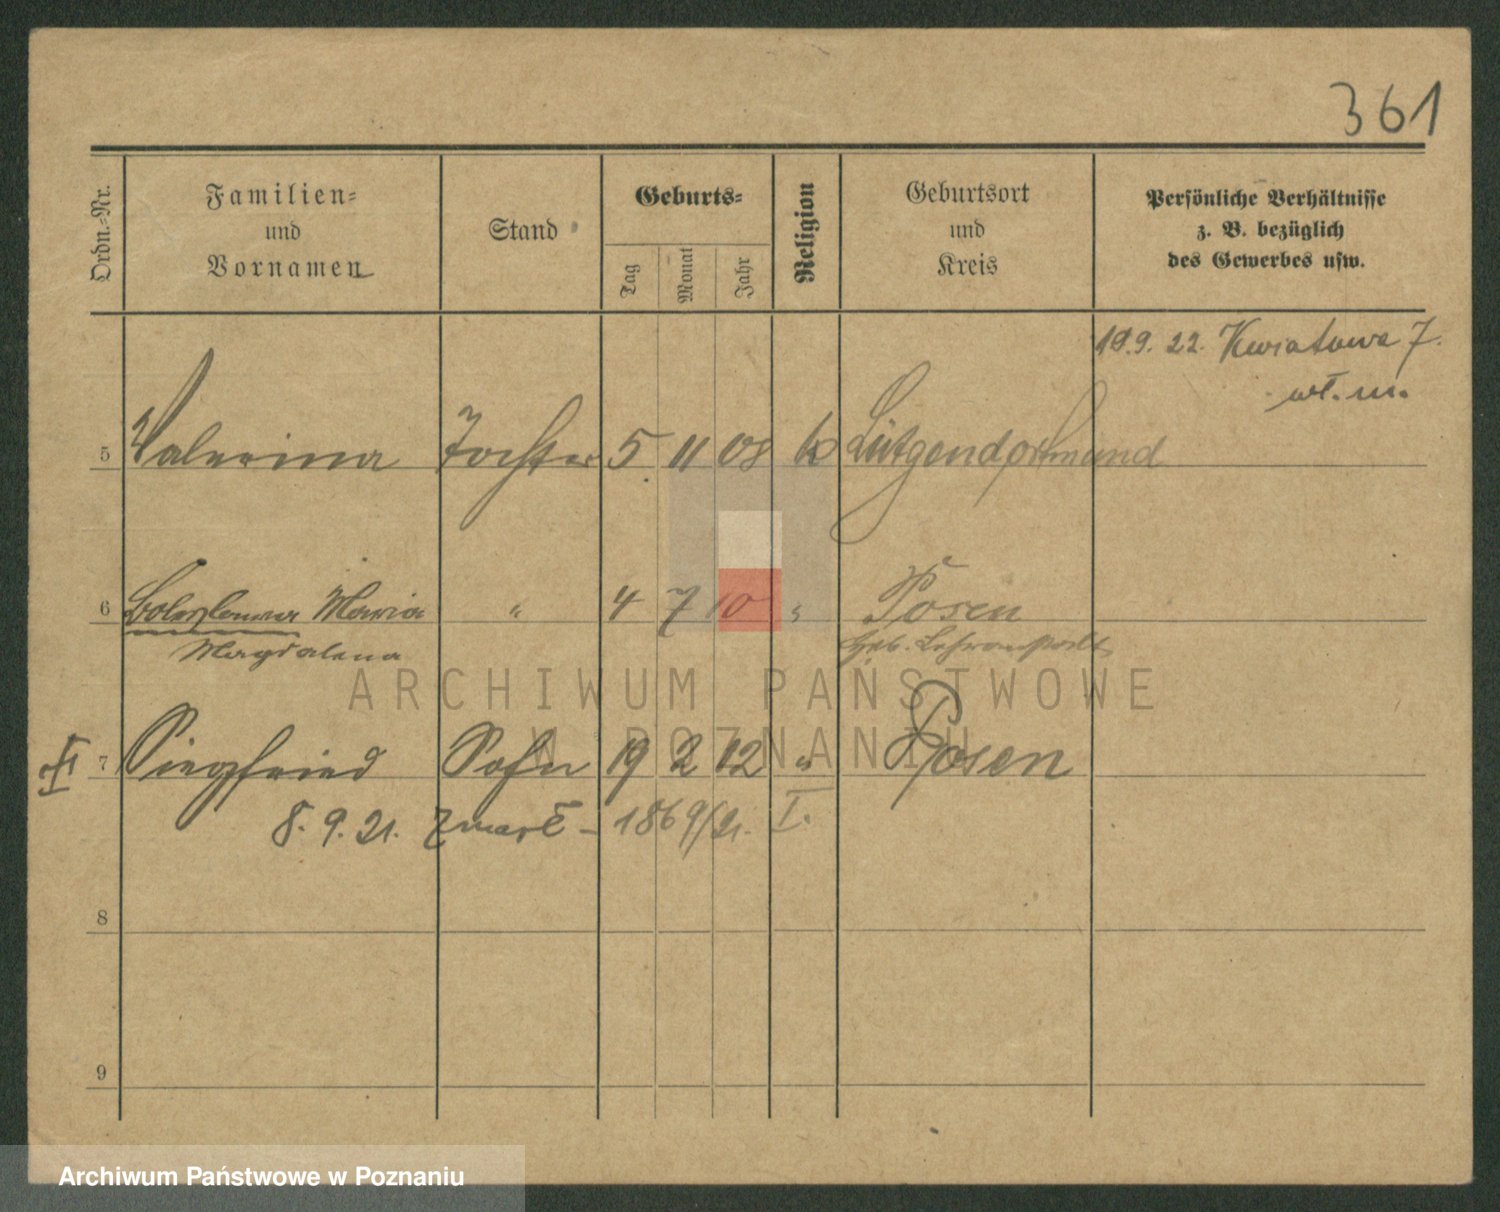 361
Ordn.-Nr.
Familien-
und
Vornamen
Stand
Geburts-
Tag
Monat
Jahr
Religion
Geburtsort
und
Kreis
Persönliche Verhältnisse
z. B. bezüglich
des Gewerbes usw.
19.9.22. Kwiatowa 7.
wł. m.
5 Valerina Tochter 5 11 08 k Lütgendortmund
6 Boleslawa Maria " 4 7 10 " Posen
Magdalena
7 Siegfried Sohn 19 2 12 " Posen
8. 9. 21. zmarł – 1869/21. I.
8
9
ARCHIWUM PAŃSTWOWE
W POZNANIU
Archiwum Państwowe w Poznaniu